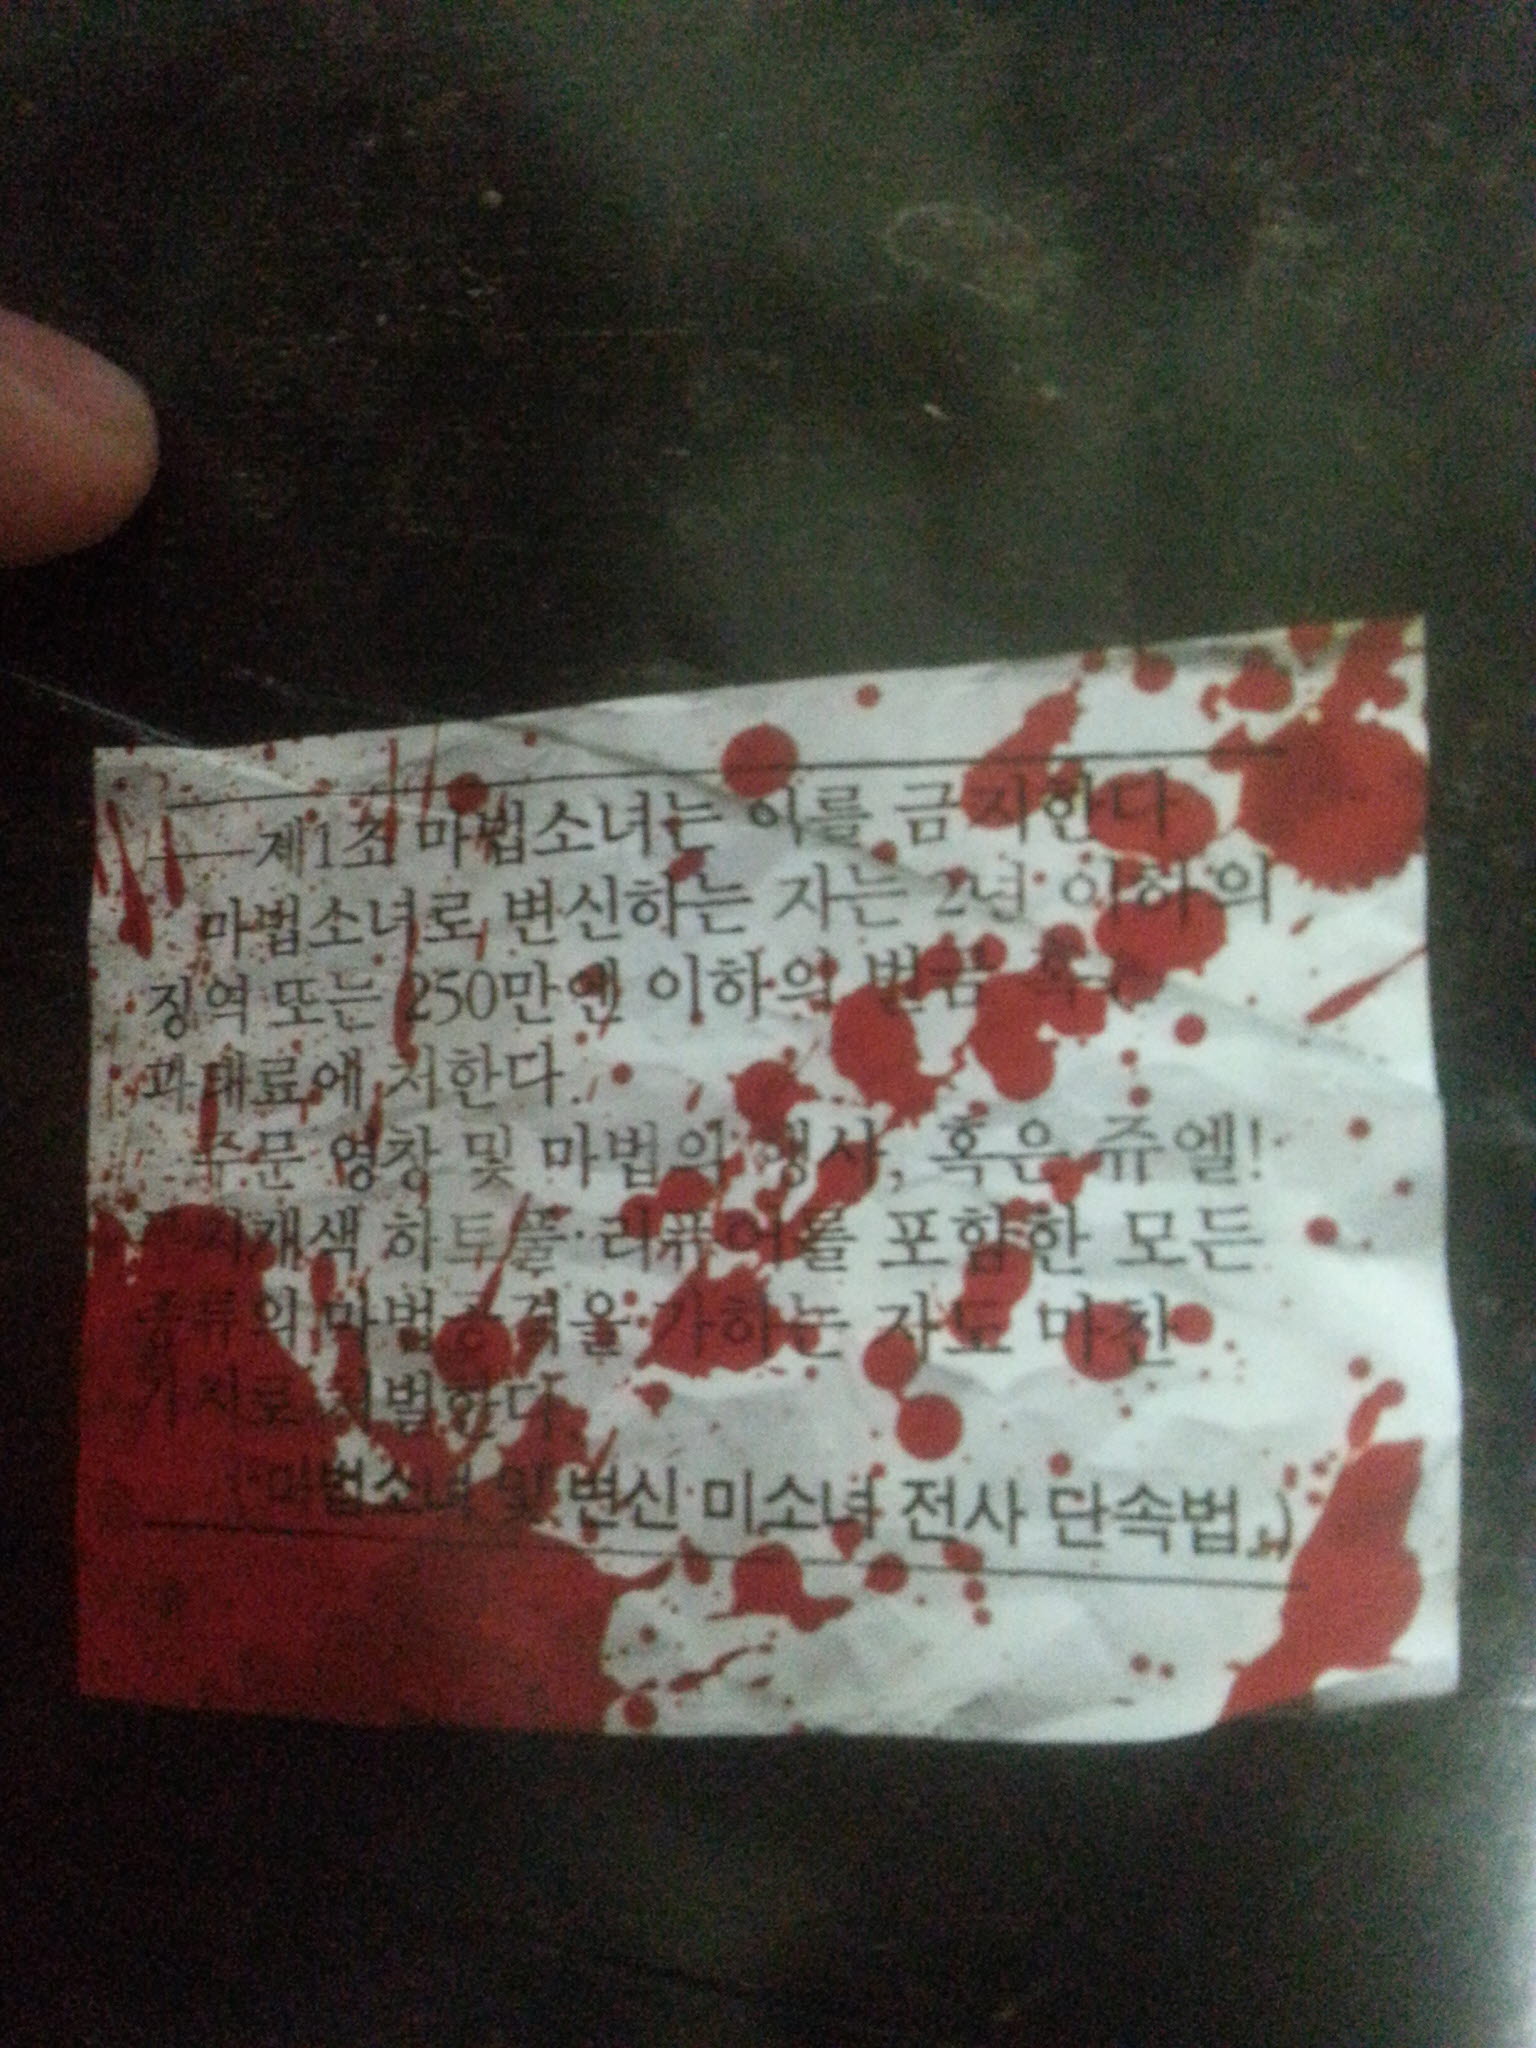 ──제1조 마법소녀는 이를 금지한다
마법소녀로 변신하는 자는 2년 이하의
징역 또는 250만엔 이하의 벌금
과태료에 처한다.
주문 영창 및 마법의 행사, 혹은 쥬엘!
색 하토풀·리퓨어를 포함한 모든
종류의 마법공격을 가하는 자도 마찬
가지로 처벌한다
마법소녀 및 변신 미소녀 전사 단속법」)